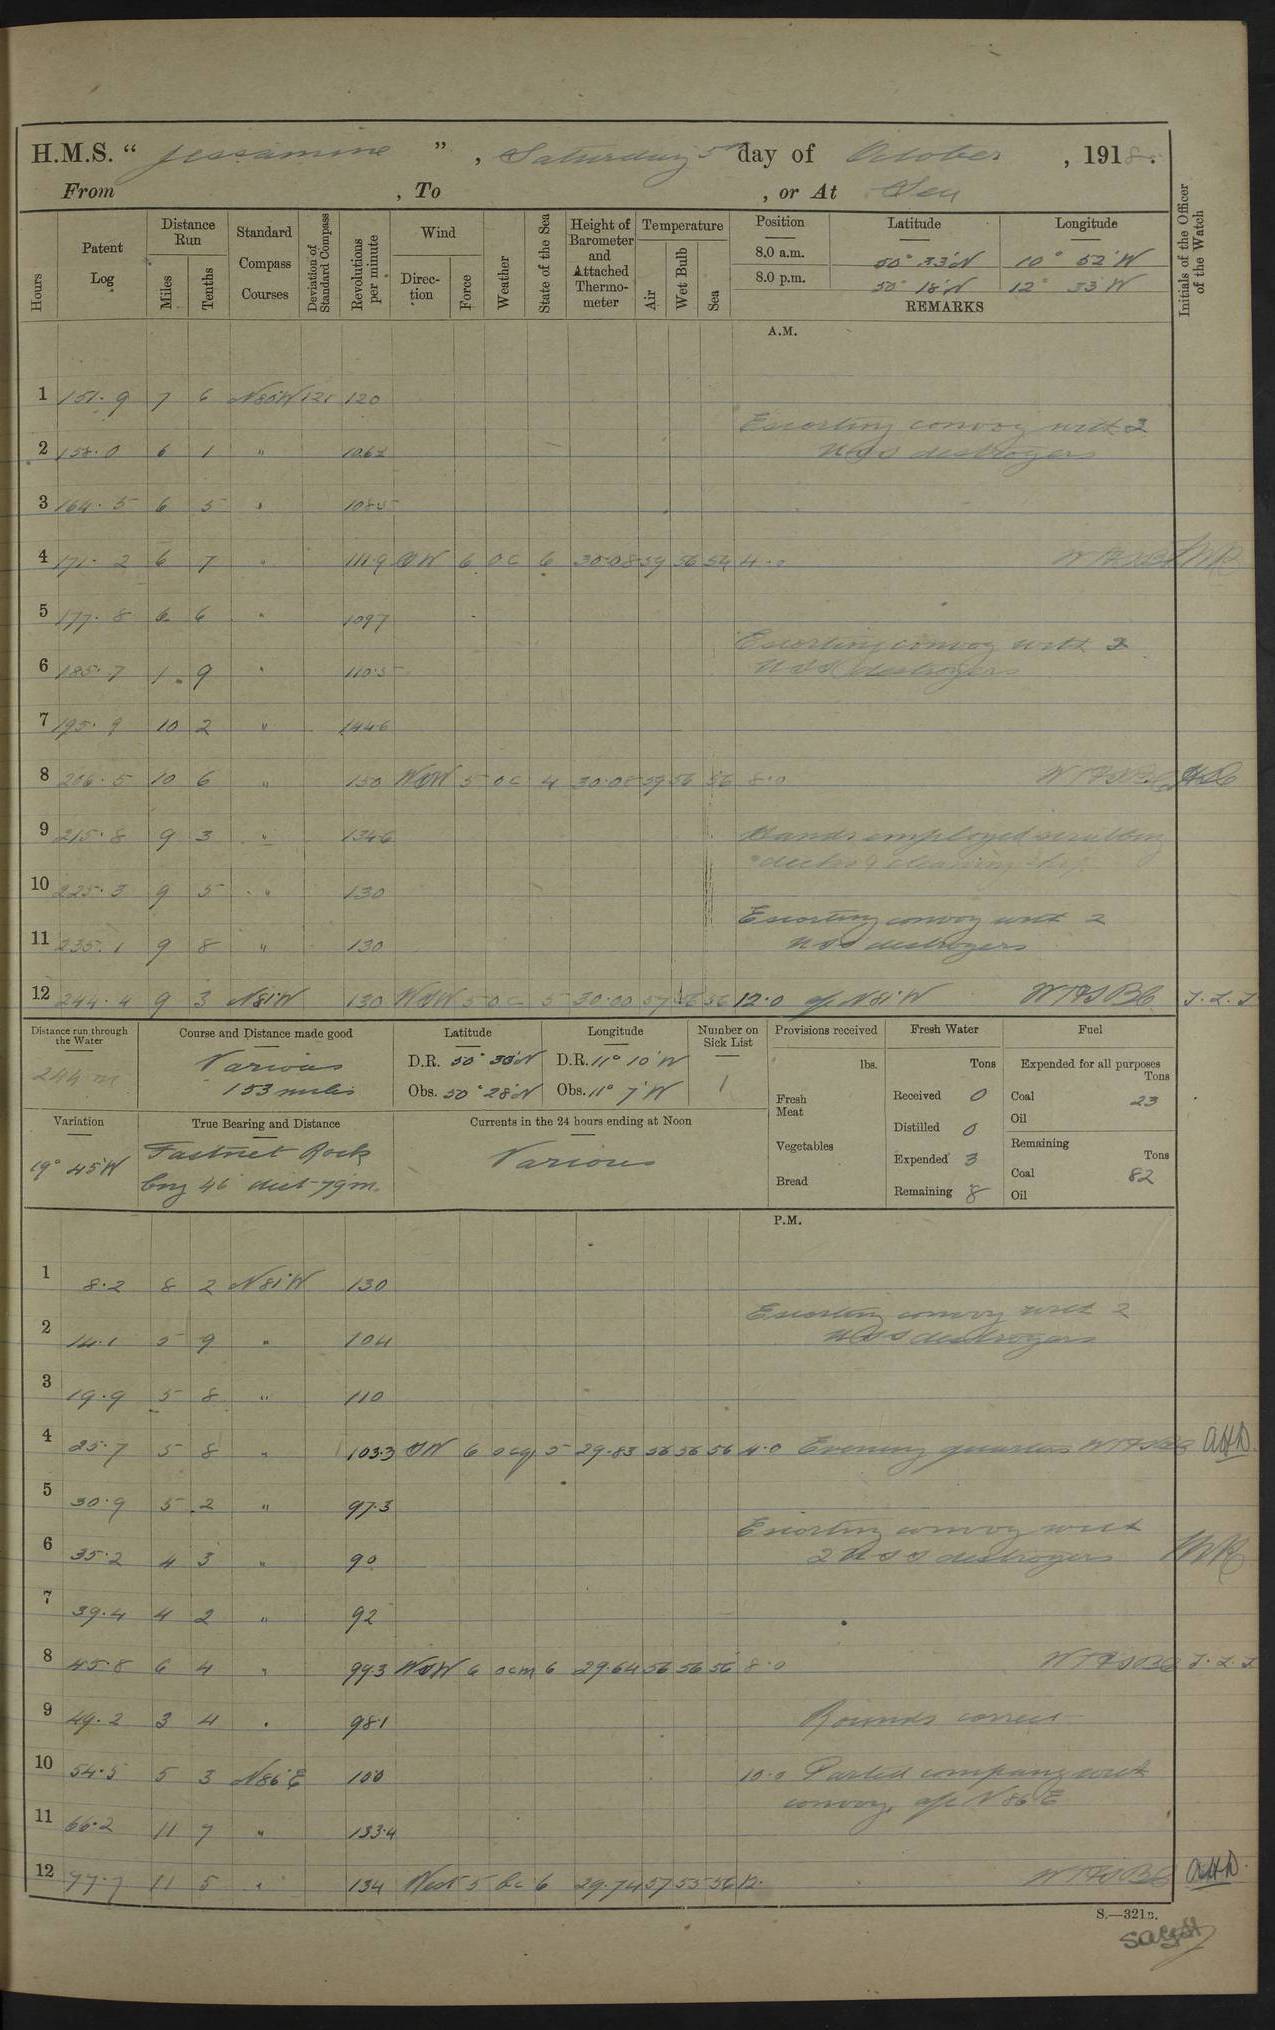 H.M.S. “ Jessamine ” , Saturday 5th day of October , 1918 .
From , To , or At Sea
Hours Patent Log Distance Run Miles Tenths Standard Compass Courses Deviation of Standard Compass Revolutions per minute Wind Direc-tion Force Weather State of the Sea Height of Barometer and Attached Thermo-meter Temperature Air Wet Bulb Sea Position Latitude Longitude Initials of the Officer of the Watch
8.0 a.m. 50° 33'N 10° 52'W
8.0 p.m. 50° 18'N 12° 33'W
REMARKS
A.M.
1 151.9 7 6 N80W 120
Escorting convoy with 2
2 158.0 6 1 " 106.2 USS destroyers
3 164.5 6 5 " 108.5
4 171.2 6 7 " 111.9 SW 6 oc 6 30.08 59 56 54 4.0
5 177.8 6 6 " 109.7
Escorting convoy with 2
6 185.7 1 9 " 110.5 USS destroyers
7 195.9 10 2 " 144.6
8 206.5 10 6 " 150 WSW 5 oc 4 30.08 59 56 56 8.0
9 215.8 9 3 " 134.6 Hands employed scrubbing
decks & cleaning ship
10 225.3 9 5 " 130
Escorting convoy with 2
11 235.1 9 8 " 130 USS destroyers
12 244.4 9 3 N81°W 130 WSW 5 oc 5 30.00 57 56 56 12.0 a/c N81°W J.L.J
Distance run through the Water Course and Distance made good Latitude Longitude Number on Sick List Provisions received Fresh Water Fuel
244 m Various D.R. 50° 33'N D.R. 11° 10'W lbs. Tons Expended for all purposes Tons
153 miles Obs. 50° 28'N Obs. 11° 7'W 1 Fresh Meat Received 0 Coal 23
Oil
Variation True Bearing and Distance Currents in the 24 hours ending at Noon Distilled 0 Remaining
19° 45'W Fastnet Rock Various Vegetables Expended 3 Tons
brg 46 dist 79m. Bread Remaining 8 Coal 82
Oil
P.M.
1 8.2 8 2 N81°W 130
Escorting convoy with 2
2 14.1 5 9 " 104 USS destroyers
3 19.9 5 8 " 110
4 25.7 5 8 " 103.3 SW 6 ocq 5 29.83 56 56 56 4.0 Evening quarters AHD.
5 30.9 5 2 " 97.3
Escorting convoy with
6 35.2 4 3 " 90 2 USS destroyers
7 39.4 4 2 " 92
8 45.8 6 4 " 99.3 WSW 6 ocm 6 29.64 56 56 56 8.0 J.L.J
9 49.2 3 4 " 98.1 Rounds correct
10 54.5 5 3 N86°E 100 10.0 Parted company with
convoy, a/c N86°E
11 66.2 11 7 " 133.4
12 77.7 11 5 " 134 West 5 bc 6 29.74 57 55 56 12. AHD.
S.—321B.